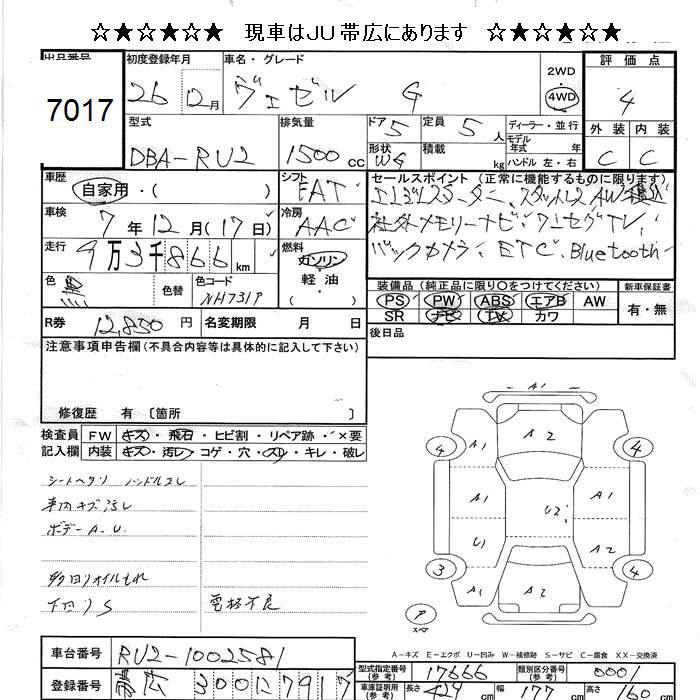 ☆★☆★☆★ 現車はJU帯広にあります ☆★☆★☆★
出品番号 初度登録年月 車名・グレード 2WD 評価点
7017 26 12月 ヴェゼル G 4WD 4
型式 排気量 ドア 定員 ディーラー・並行 外装 内装
DBA-RU2 1500cc 5 5人 モデル年式 年式 C C
形状 WG 積載 kg ハンドル 左・右
車歴 シフト セールスポイント (正常に機能するものに限ります)
自家用・( ) FAT
車検 冷房 社外メモリーナビ、ワンセグTV、
7年12月(17日) AAC バックカメラ、ETC、Bluetooth
走行 燃料
9万3千866km ガソリン 装備品 (純正品に限り○をつけてください) 新車保証書
軽・油 PS PW ABS エアB AW 有・無
色 黒 色替 色コード NH731P SR ナビ TV カワ
R券 12,850円 名変期限 月 日 後日品
注意事項申告欄(不具合内容等は具体的に記入して下さい)
修復歴 有 〔箇所 〕
検査員 FW キズ・飛石・ヒビ割・リペア跡・×要
記入欄 内装 キズ・汚レ・コゲ・穴・スレ・キレ・破レ
シートヘタリ ハンドルスレ
車内キズ汚レ
ボデーA.U
下回りS 電格不良
A1
4 A1 A2 4
A1 A1
U2
U1 A2
3 A1 A2 4
ア
スペア
A-キズ E-エクボ U-凹み W-補修跡 S-サビ C-腐食 XX-交換済
車台番号 RU2-1002581
型式指定番号(参考) 17666 類別区分番号(参考) 0001
登録番号 帯広 300 7917
車庫証明用(参考) 長さ 429cm 幅 177cm 高さ 160cm